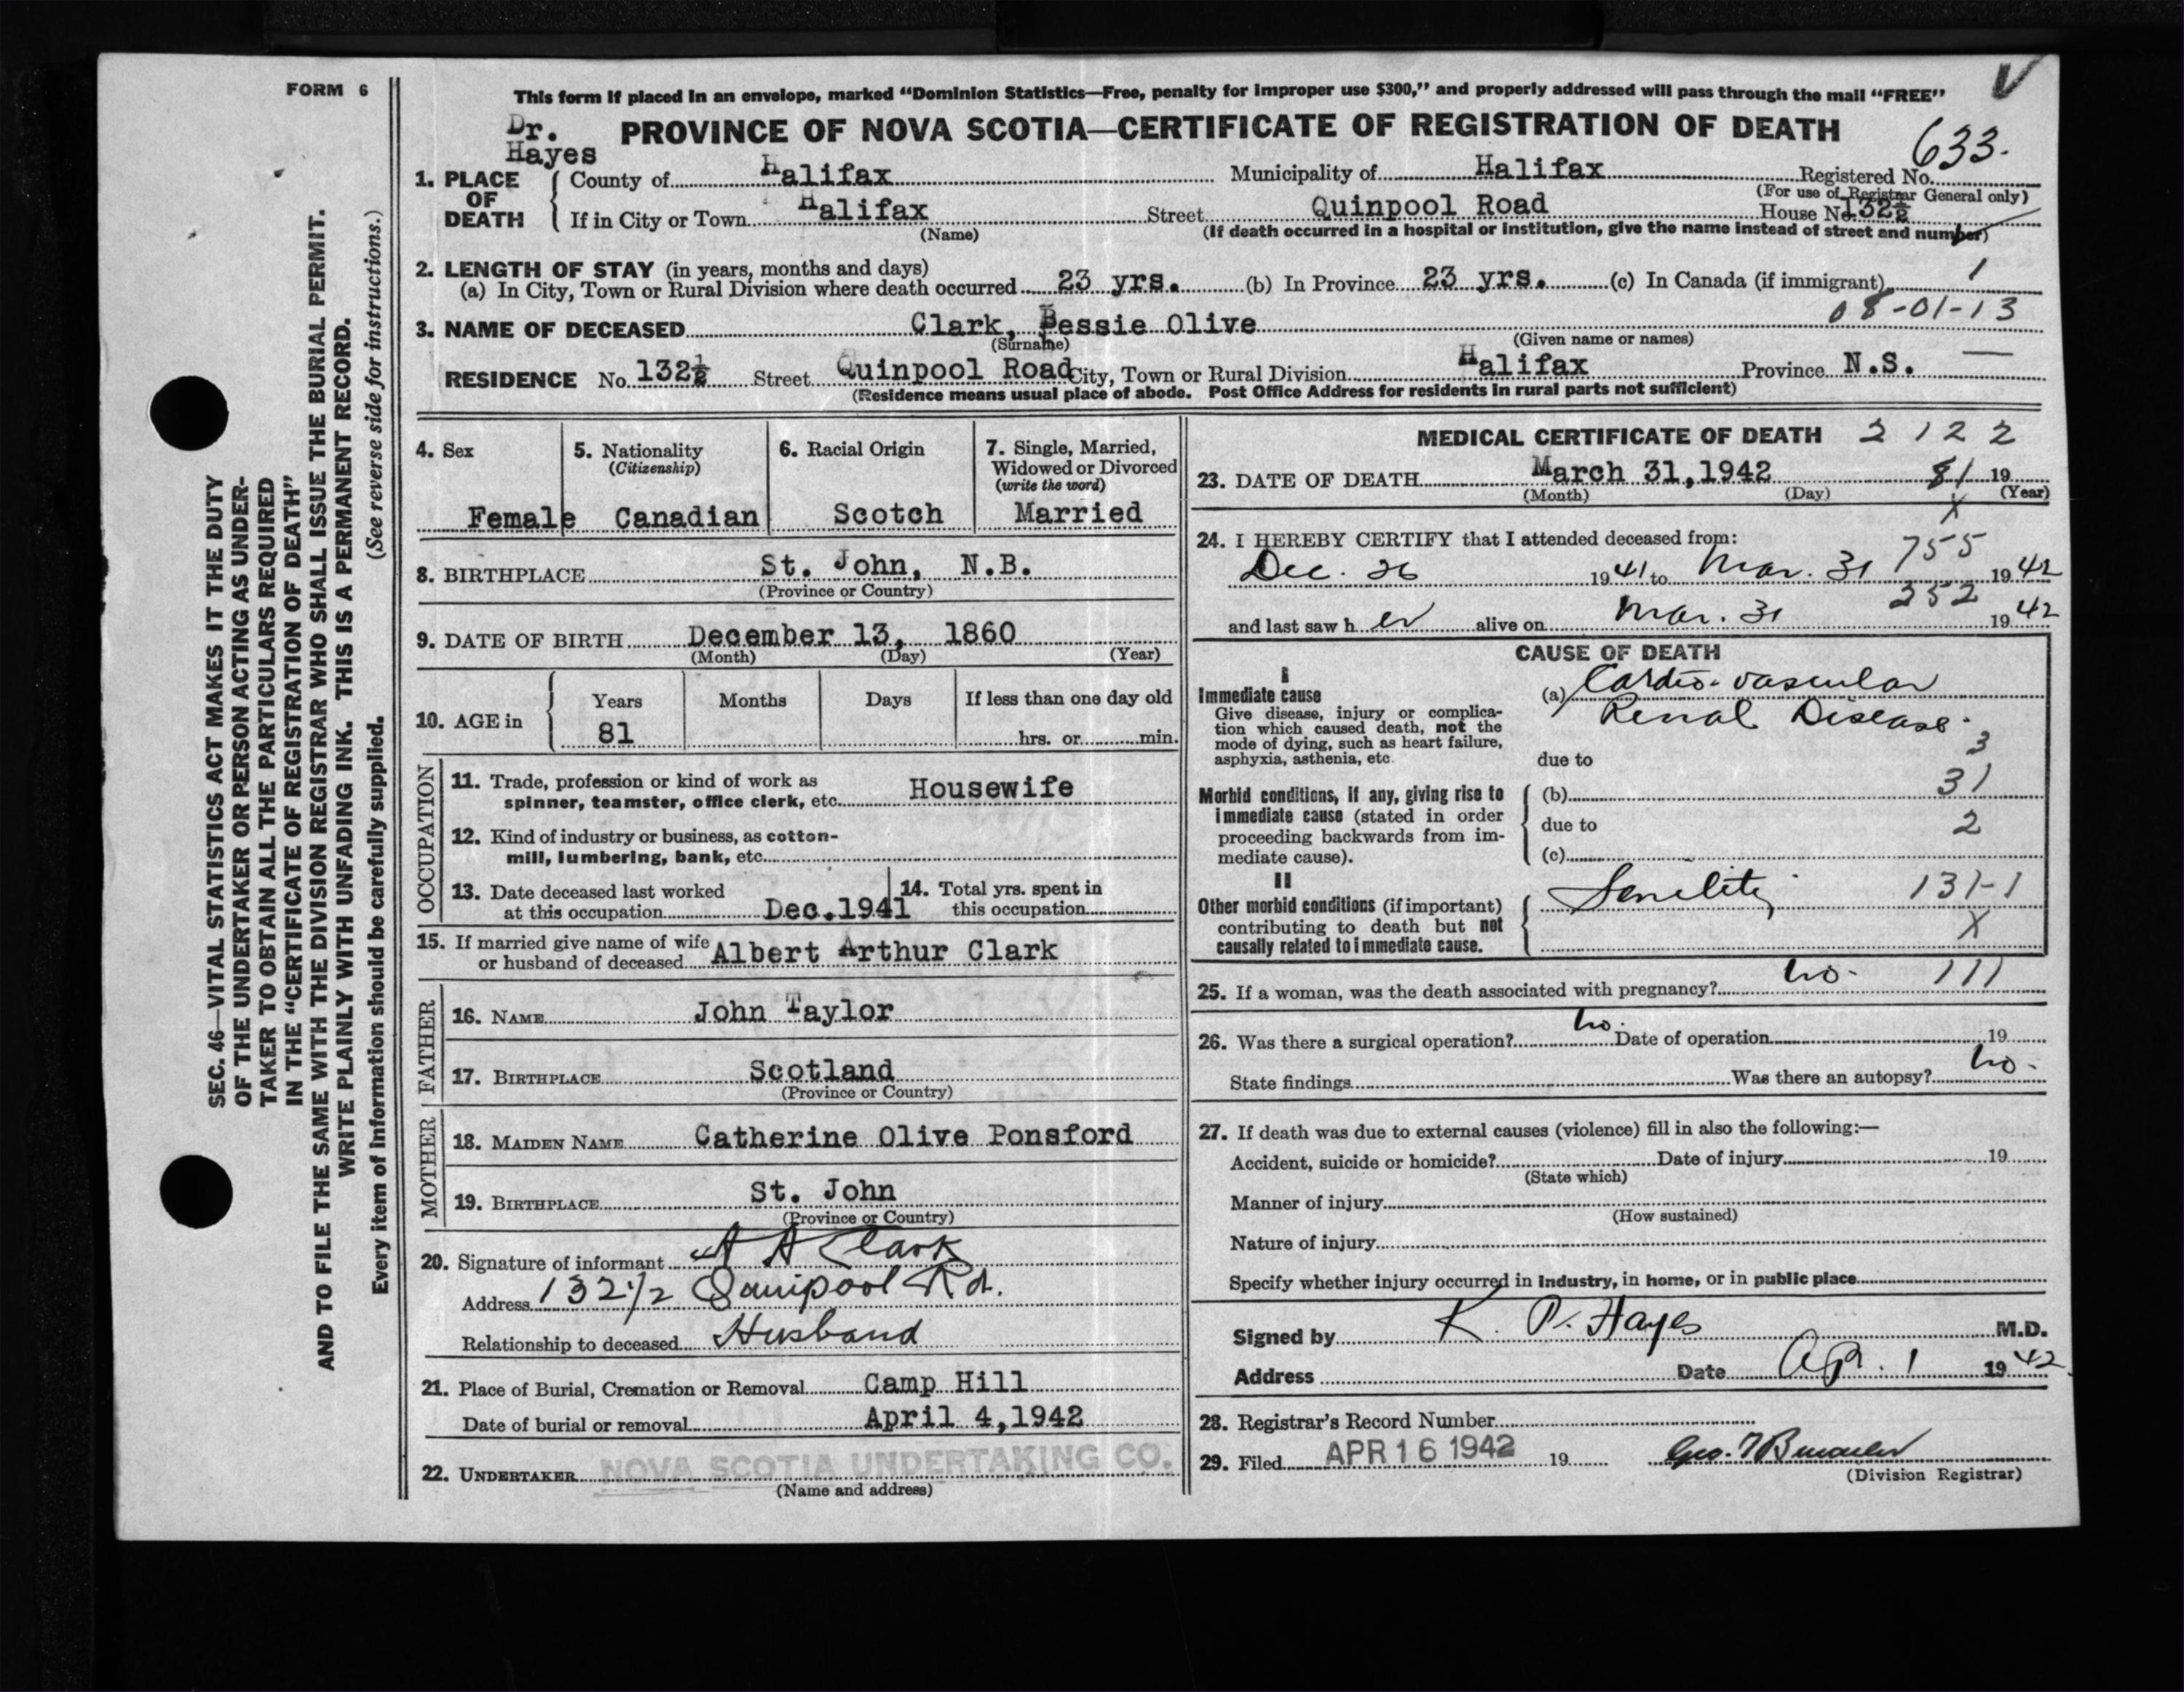 FORM 6
This form if placed in an envelope, marked "Dominion Statistics—Free, penalty for improper use $300," and properly addressed will pass through the mail "FREE"
Dr.
Hayes
PROVINCE OF NOVA SCOTIA—CERTIFICATE OF REGISTRATION OF DEATH
633.
1. PLACE OF DEATH
County of Halifax Municipality of Halifax Registered No.
(For use of Registrar General only)
If in City or Town Halifax Street Quinpool Road House No. 132½
(Name) (If death occurred in a hospital or institution, give the name instead of street and number)
2. LENGTH OF STAY (in years, months and days)
(a) In City, Town or Rural Division where death occurred 23 yrs. (b) In Province 23 yrs. (c) In Canada (if immigrant) 1
08-01-13
3. NAME OF DECEASED Clark, Bessie Olive
(Surname) (Given name or names)
RESIDENCE No. 132½ Street Quinpool Road City, Town or Rural Division Halifax Province N.S. —
(Residence means usual place of abode. Post Office Address for residents in rural parts not sufficient)
4. Sex
Female
5. Nationality
(Citizenship)
Canadian
6. Racial Origin
Scotch
7. Single, Married,
Widowed or Divorced
(write the word)
Married
8. BIRTHPLACE St. John, N.B.
(Province or Country)
9. DATE OF BIRTH December 13, 1860
(Month) (Day) (Year)
10. AGE in
Years Months Days If less than one day old
81 hrs. or min.
OCCUPATION
11. Trade, profession or kind of work as
spinner, teamster, office clerk, etc. Housewife
12. Kind of industry or business, as cotton-
mill, lumbering, bank, etc.
13. Date deceased last worked
at this occupation Dec.1941
14. Total yrs. spent in
this occupation
15. If married give name of wife
or husband of deceased Albert Arthur Clark
FATHER
16. NAME John Taylor
17. BIRTHPLACE Scotland
(Province or Country)
MOTHER
18. MAIDEN NAME Catherine Olive Ponsford
19. BIRTHPLACE St. John
(Province or Country)
20. Signature of informant A A Clark
Address 132½ Quinpool Rd.
Relationship to deceased Husband
21. Place of Burial, Cremation or Removal Camp Hill
Date of burial or removal April 4,1942
22. UNDERTAKER NOVA SCOTIA UNDERTAKING CO.
(Name and address)
MEDICAL CERTIFICATE OF DEATH 2 1 2 2
23. DATE OF DEATH March 31,1942 81 19
(Month) (Day) (Year)
X
24. I HEREBY CERTIFY that I attended deceased from:
755
Dec. 26 1941 to Mar. 31 1942
252
and last saw her alive on Mar. 31 1942
CAUSE OF DEATH
I
Immediate cause
Give disease, injury or complica-
tion which caused death, not the
mode of dying, such as heart failure,
asphyxia, asthenia, etc.
(a) Cardio-vascular
Renal Disease.
3
due to
Morbid conditions, if any, giving rise to
immediate cause (stated in order
proceeding backwards from im-
mediate cause).
(b) 31
due to 2
(c)
II
Other morbid conditions (if important)
contributing to death but not
causally related to immediate cause.
Senility 131-1
X
25. If a woman, was the death associated with pregnancy? no. 111
26. Was there a surgical operation? no. Date of operation 19
State findings Was there an autopsy? no.
27. If death was due to external causes (violence) fill in also the following:—
Accident, suicide or homicide? Date of injury 19
(State which)
Manner of injury
(How sustained)
Nature of injury
Specify whether injury occurred in industry, in home, or in public place
Signed by K. P. Hayes M.D.
Address Date Apr. 1 1942
28. Registrar's Record Number
29. Filed APR 16 1942 19
(Division Registrar)
SEC. 46—VITAL STATISTICS ACT MAKES IT THE DUTY
OF THE UNDERTAKER OR PERSON ACTING AS UNDER-
TAKER TO OBTAIN ALL THE PARTICULARS REQUIRED
IN THE "CERTIFICATE OF REGISTRATION OF DEATH"
AND TO FILE THE SAME WITH THE DIVISION REGISTRAR WHO SHALL ISSUE THE BURIAL PERMIT.
WRITE PLAINLY WITH UNFADING INK. THIS IS A PERMANENT RECORD.
Every item of information should be carefully supplied. (See reverse side for instructions.)